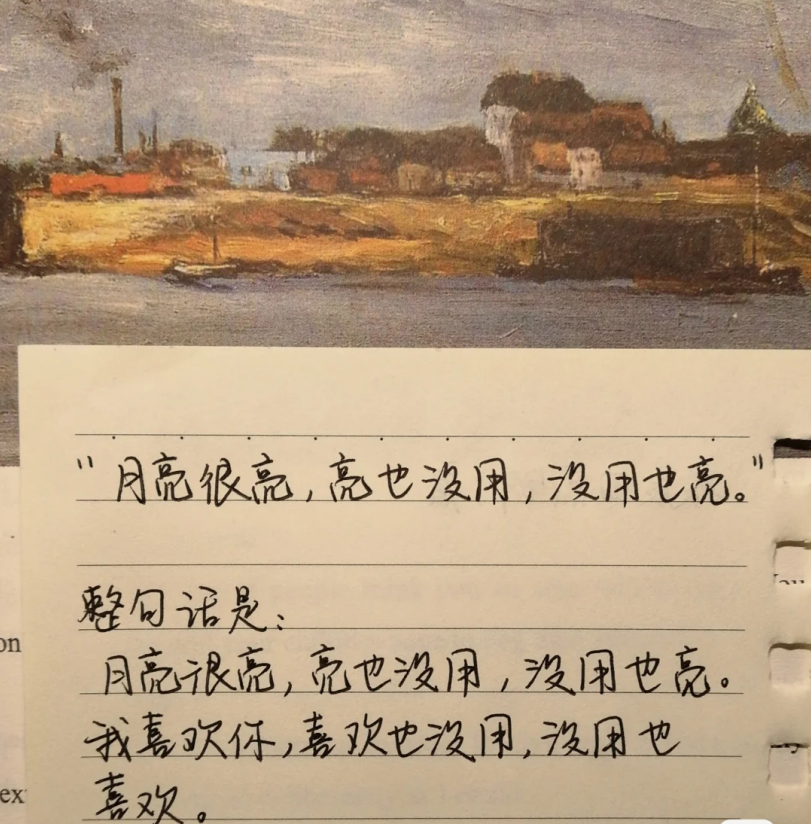 "月亮很亮，亮也没用，没用也亮。"
整句话是：
月亮很亮，亮也没用，没用也亮。
我喜欢你，喜欢也没用，没用也
喜欢。
on
ex